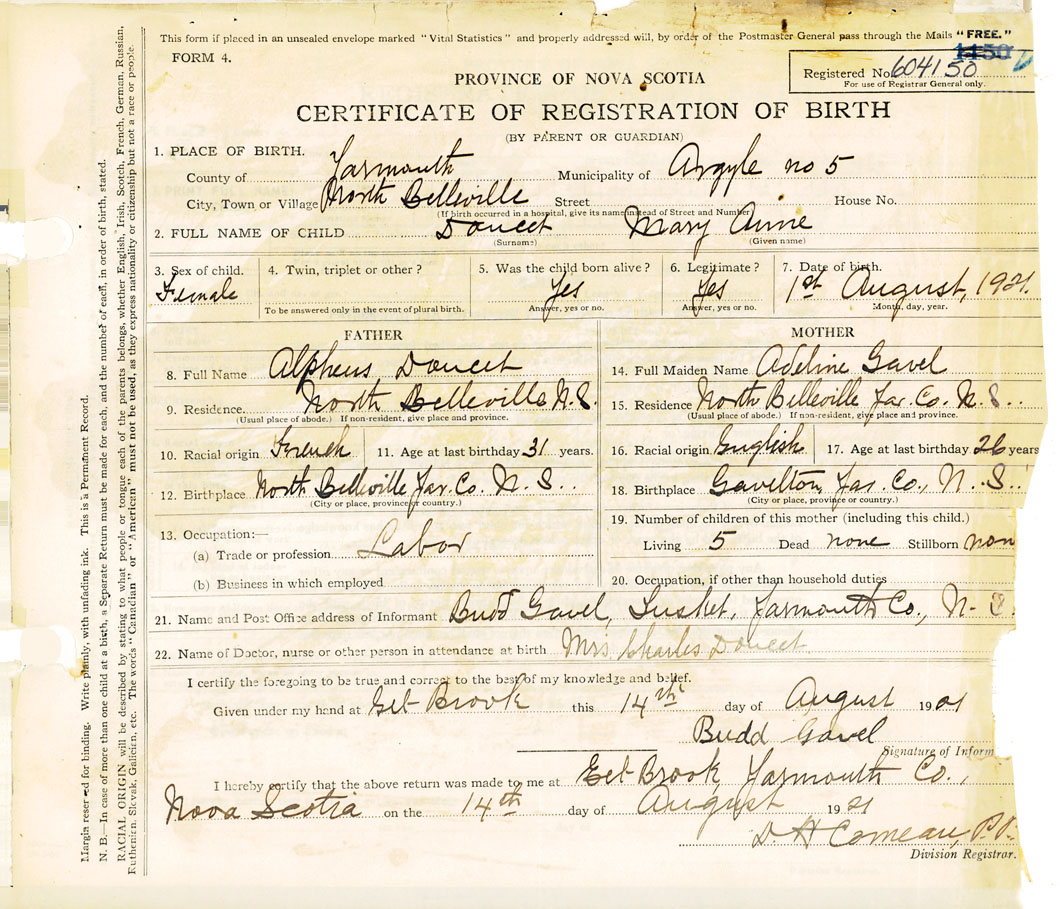 This form if placed in an unsealed envelope marked "Vital Statistics" and properly addressed will, by order of the Postmaster-General pass through the Mails "FREE."
FORM 4.
1150
Registered No. 604150
For use of Registrar General only.
PROVINCE OF NOVA SCOTIA
CERTIFICATE OF REGISTRATION OF BIRTH
(BY PARENT OR GUARDIAN)
1. PLACE OF BIRTH.
County of Yarmouth Municipality of Argyle no 5
City, Town or Village North Belleville Street House No.
(If birth occurred in a hospital, give its name instead of Street and Number)
2. FULL NAME OF CHILD Doucet Mary Anne
(Surname) (Given name)
3. Sex of child. 4. Twin, triplet or other? 5. Was the child born alive? 6. Legitimate? 7. Date of birth.
Female Yes Yes 1st August, 1921.
To be answered only in the event of plural birth. Answer, yes or no. Answer, yes or no. Month, day, year.
FATHER
8. Full Name Alpheus Doucet
9. Residence North Belleville N.S.
(Usual place of abode.) If non-resident, give place and province.
10. Racial origin French 11. Age at last birthday 31 years.
12. Birthplace North Belleville Yar. Co. N. S.
(City or place, province or country.)
13. Occupation:—
(a) Trade or profession Labor
(b) Business in which employed
MOTHER
14. Full Maiden Name Adeline Gavel
15. Residence North Belleville Yar. Co. N. S.
(Usual place of abode.) If non-resident, give place and province.
16. Racial origin English 17. Age at last birthday 26 years
18. Birthplace Gavelton, Yar. Co., N. S.
(City or place, province or country.)
19. Number of children of this mother (including this child.)
Living 5 Dead none Stillborn non
20. Occupation, if other than household duties
21. Name and Post Office address of Informant Budd Gavel, Tusket, Yarmouth Co., N. S.
22. Name of Doctor, nurse or other person in attendance at birth Mrs Charles Doucet
I certify the foregoing to be true and correct to the best of my knowledge and belief.
Given under my hand at Eel-Brook this 14th day of August 1921
Budd Gavel
Signature of Inform
I hereby certify that the above return was made to me at Eel-Brook, Yarmouth Co.,
Nova Scotia on the 14th day of August 1921
D. H Comeau, P.P.
Division Registrar.
Margin reserved for binding. Write plainly, with unfading ink. This is a Permanent Record.
N. B.—In case of more than one child at a birth, a Separate Return must be made for each, and the number of each, in order of birth, stated.
RACIAL ORIGIN will be described by stating to what people or tongue each of the parents belongs, whether English, Irish, Scotch, French, German, Russian,
Ruthenian, Slovak, Galician, etc. The words "Canadian" or "American" must not be used, as they express nationality or citizenship but not a race or people.